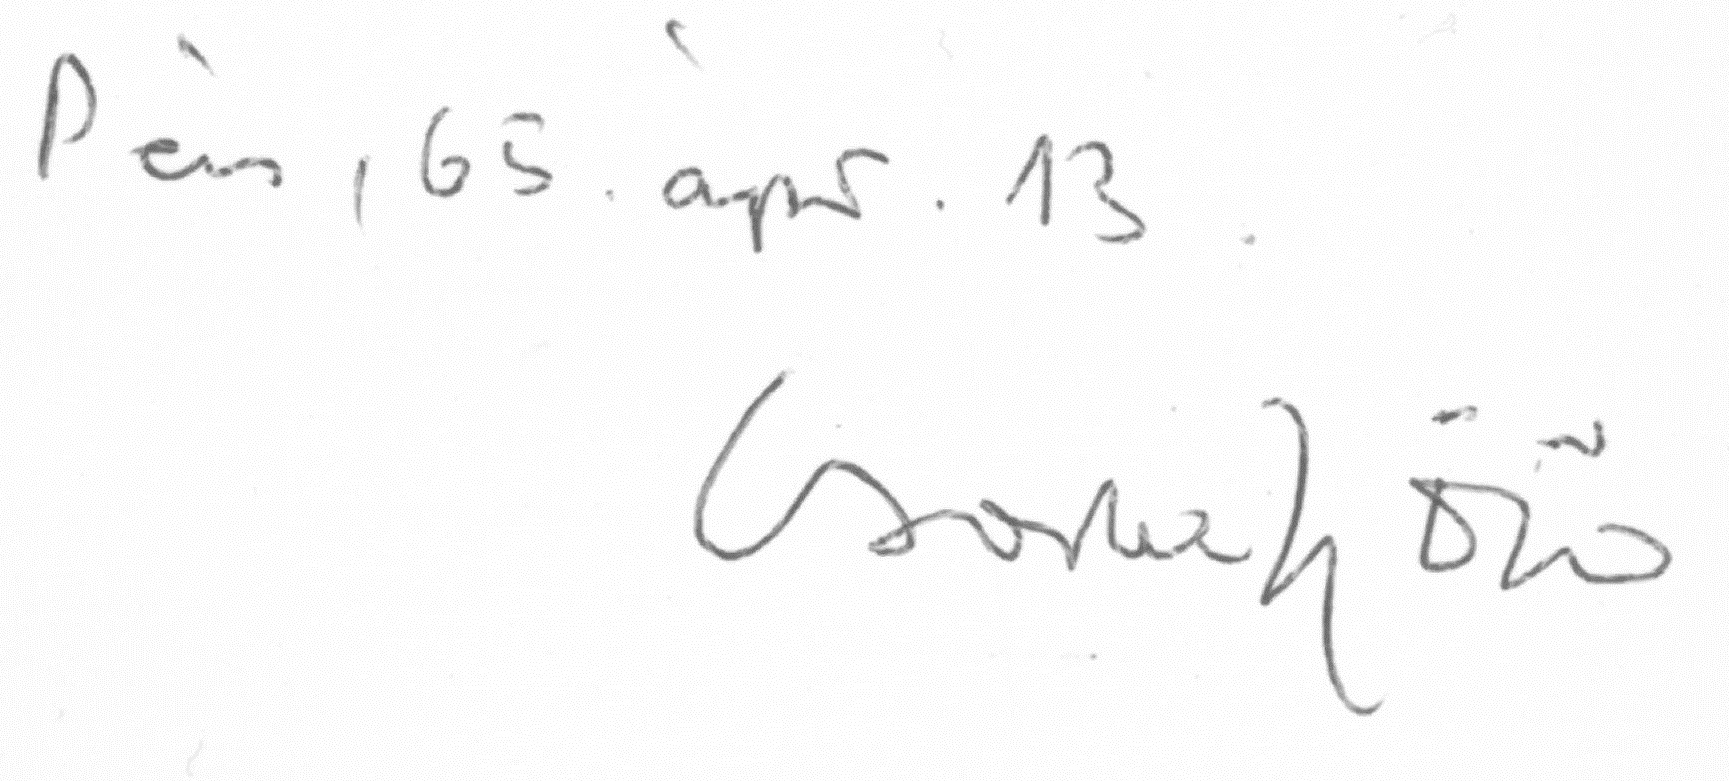 Pécs, 65. ápr. 13.
Csorba Győző